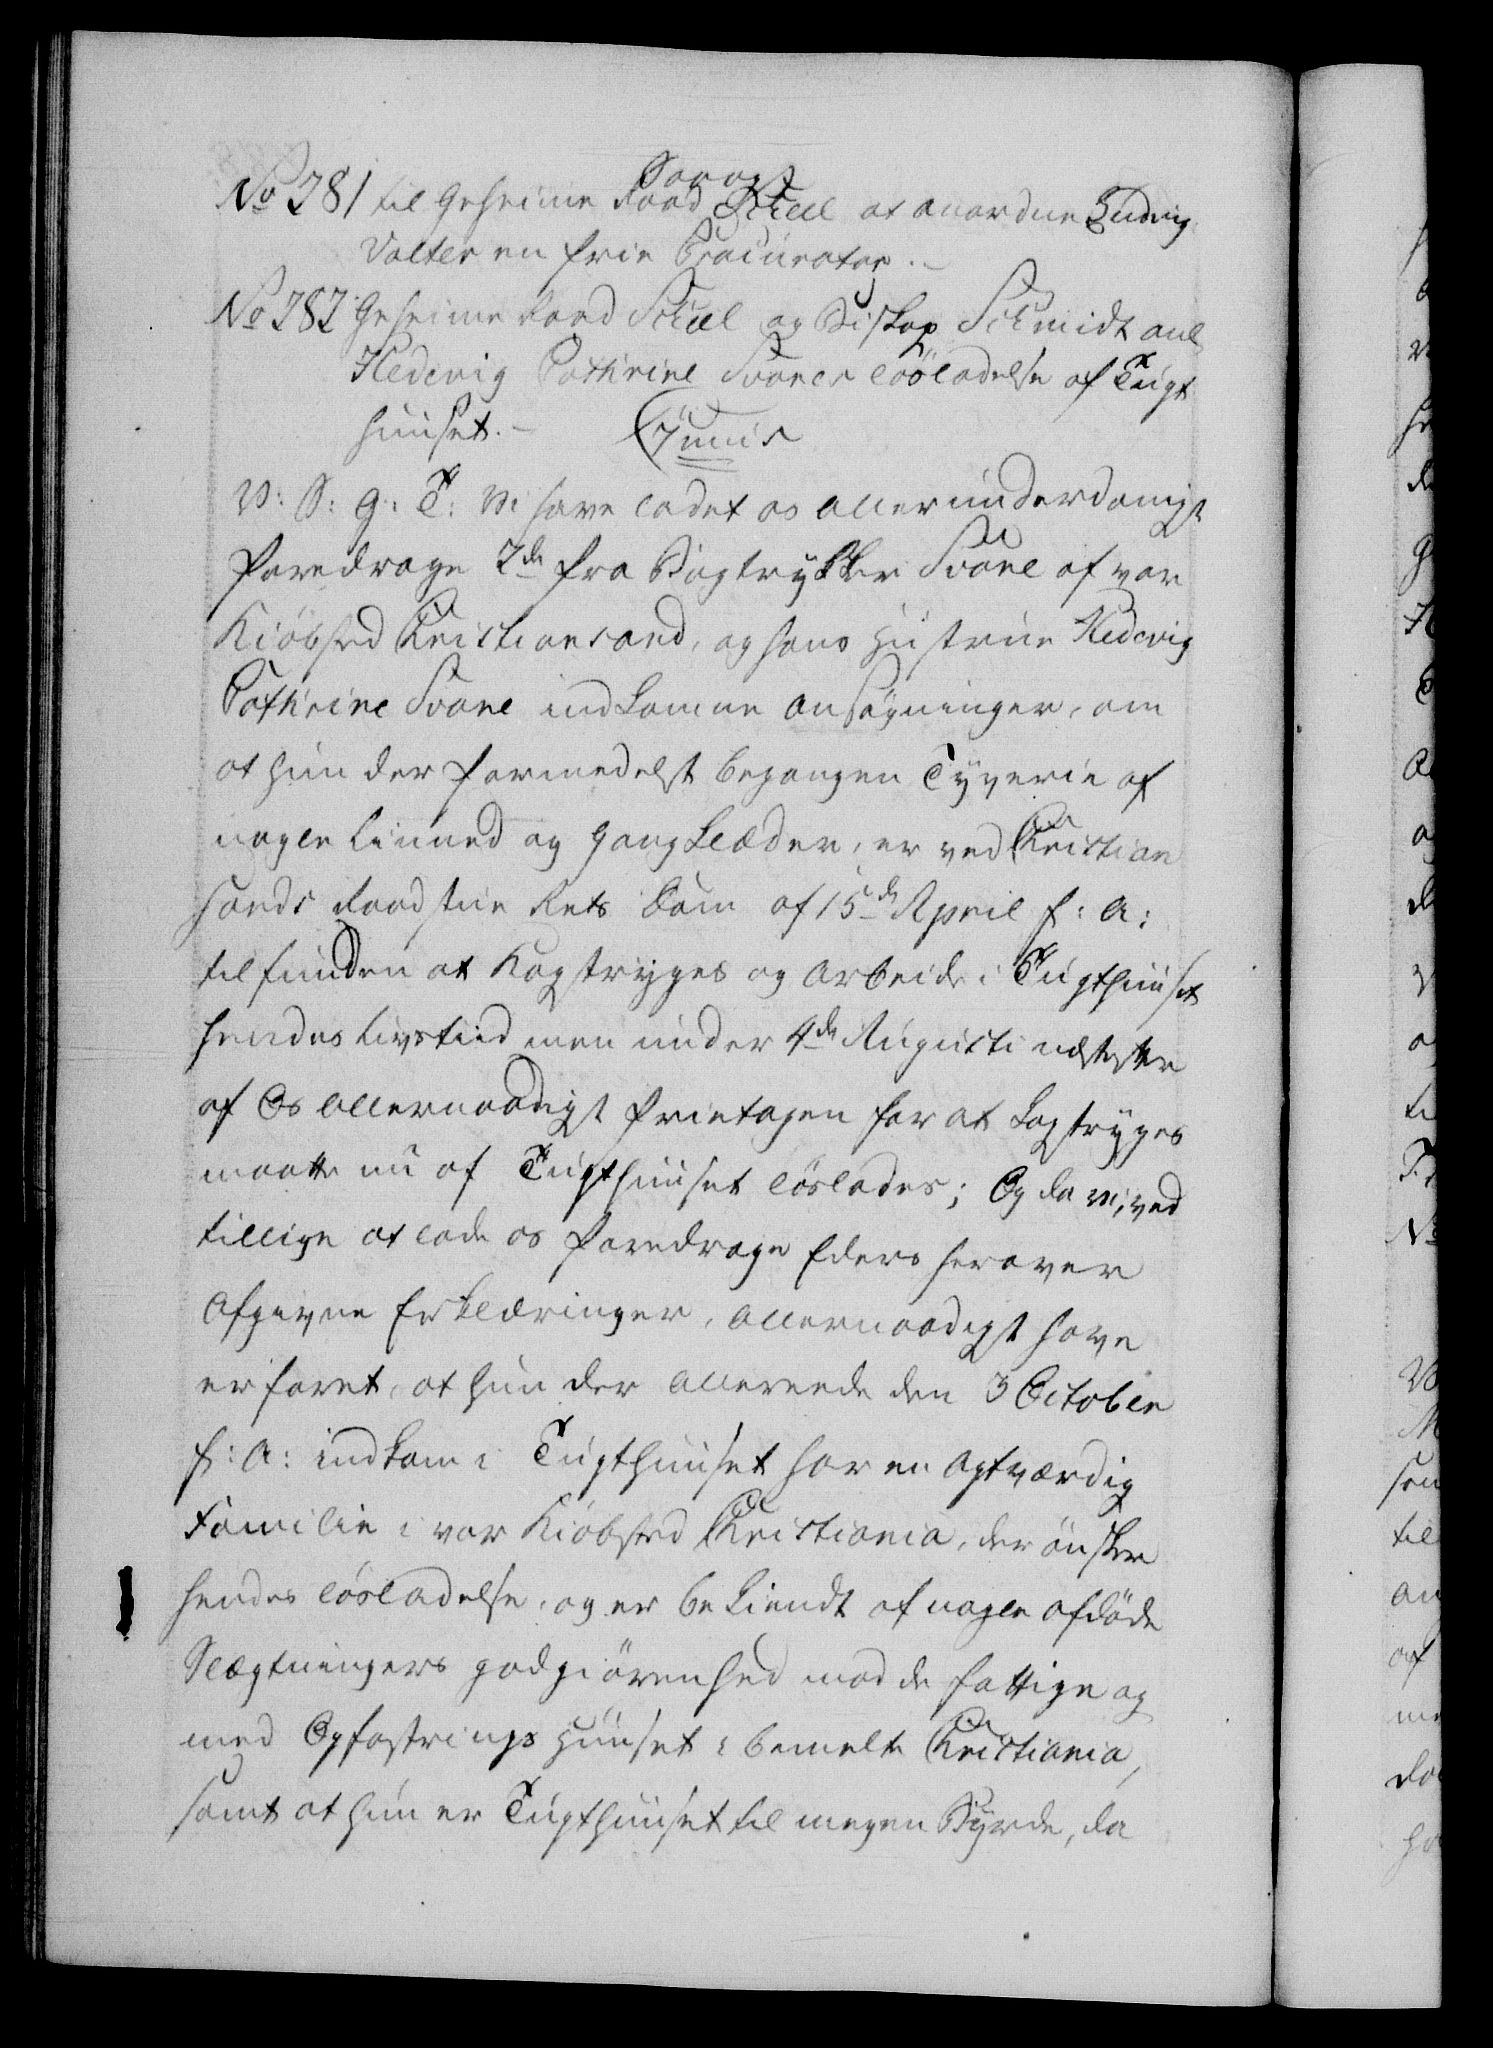 No 281 til Geheime Raad Scheel at anordne Ludvig
Valter en frie Procurator.-
No 282 Geheime Raad Scheel og Biskop Schmidt anl
Hedevig Cathrine Svanes Løsladelse af Tugt
huuset.- 7 Junii
V: S: G: T: Vi have ladet os allerunderdanigst
foredrage 2de fra Bogtrykker Svane af vor
Kiøbsted Christiansand, og hans Hustrue Hedevig
Cathrine Svane indkomne Ansøgninger, om
at hun der formedelst begangen Tyverie af
nogle Linned og Gangklæder, er ved Christian
sands Raadstue Rets Dom af 15de April f: A:
tilfunden at kagstryges og arbeide i Tugthuuset
hendes Livstiid men under 4de Augusti næstefter
af Os allernaadigst frietagen for at kagstryges
maatte nu af Tugthuuset løslades; Og da vi, ved
tillige at lade os foredrage Eders herover
afgivne Erklæringer, allernaadigst have
erfaret, at hun der allereede den 3 October
f: A: indkom i Tugthuuset har en agtværdig
Familie i vor Kiøbsted Christiania, der ønsker
hendes løsladelse, og er bekiendt af nogle afdøde
Slægtningers godgiørenhed mod de fattige og
med Opfostrings Huuset i bemelte Christiania,
samt at hun er Tugthuuset til megen Byrde, da